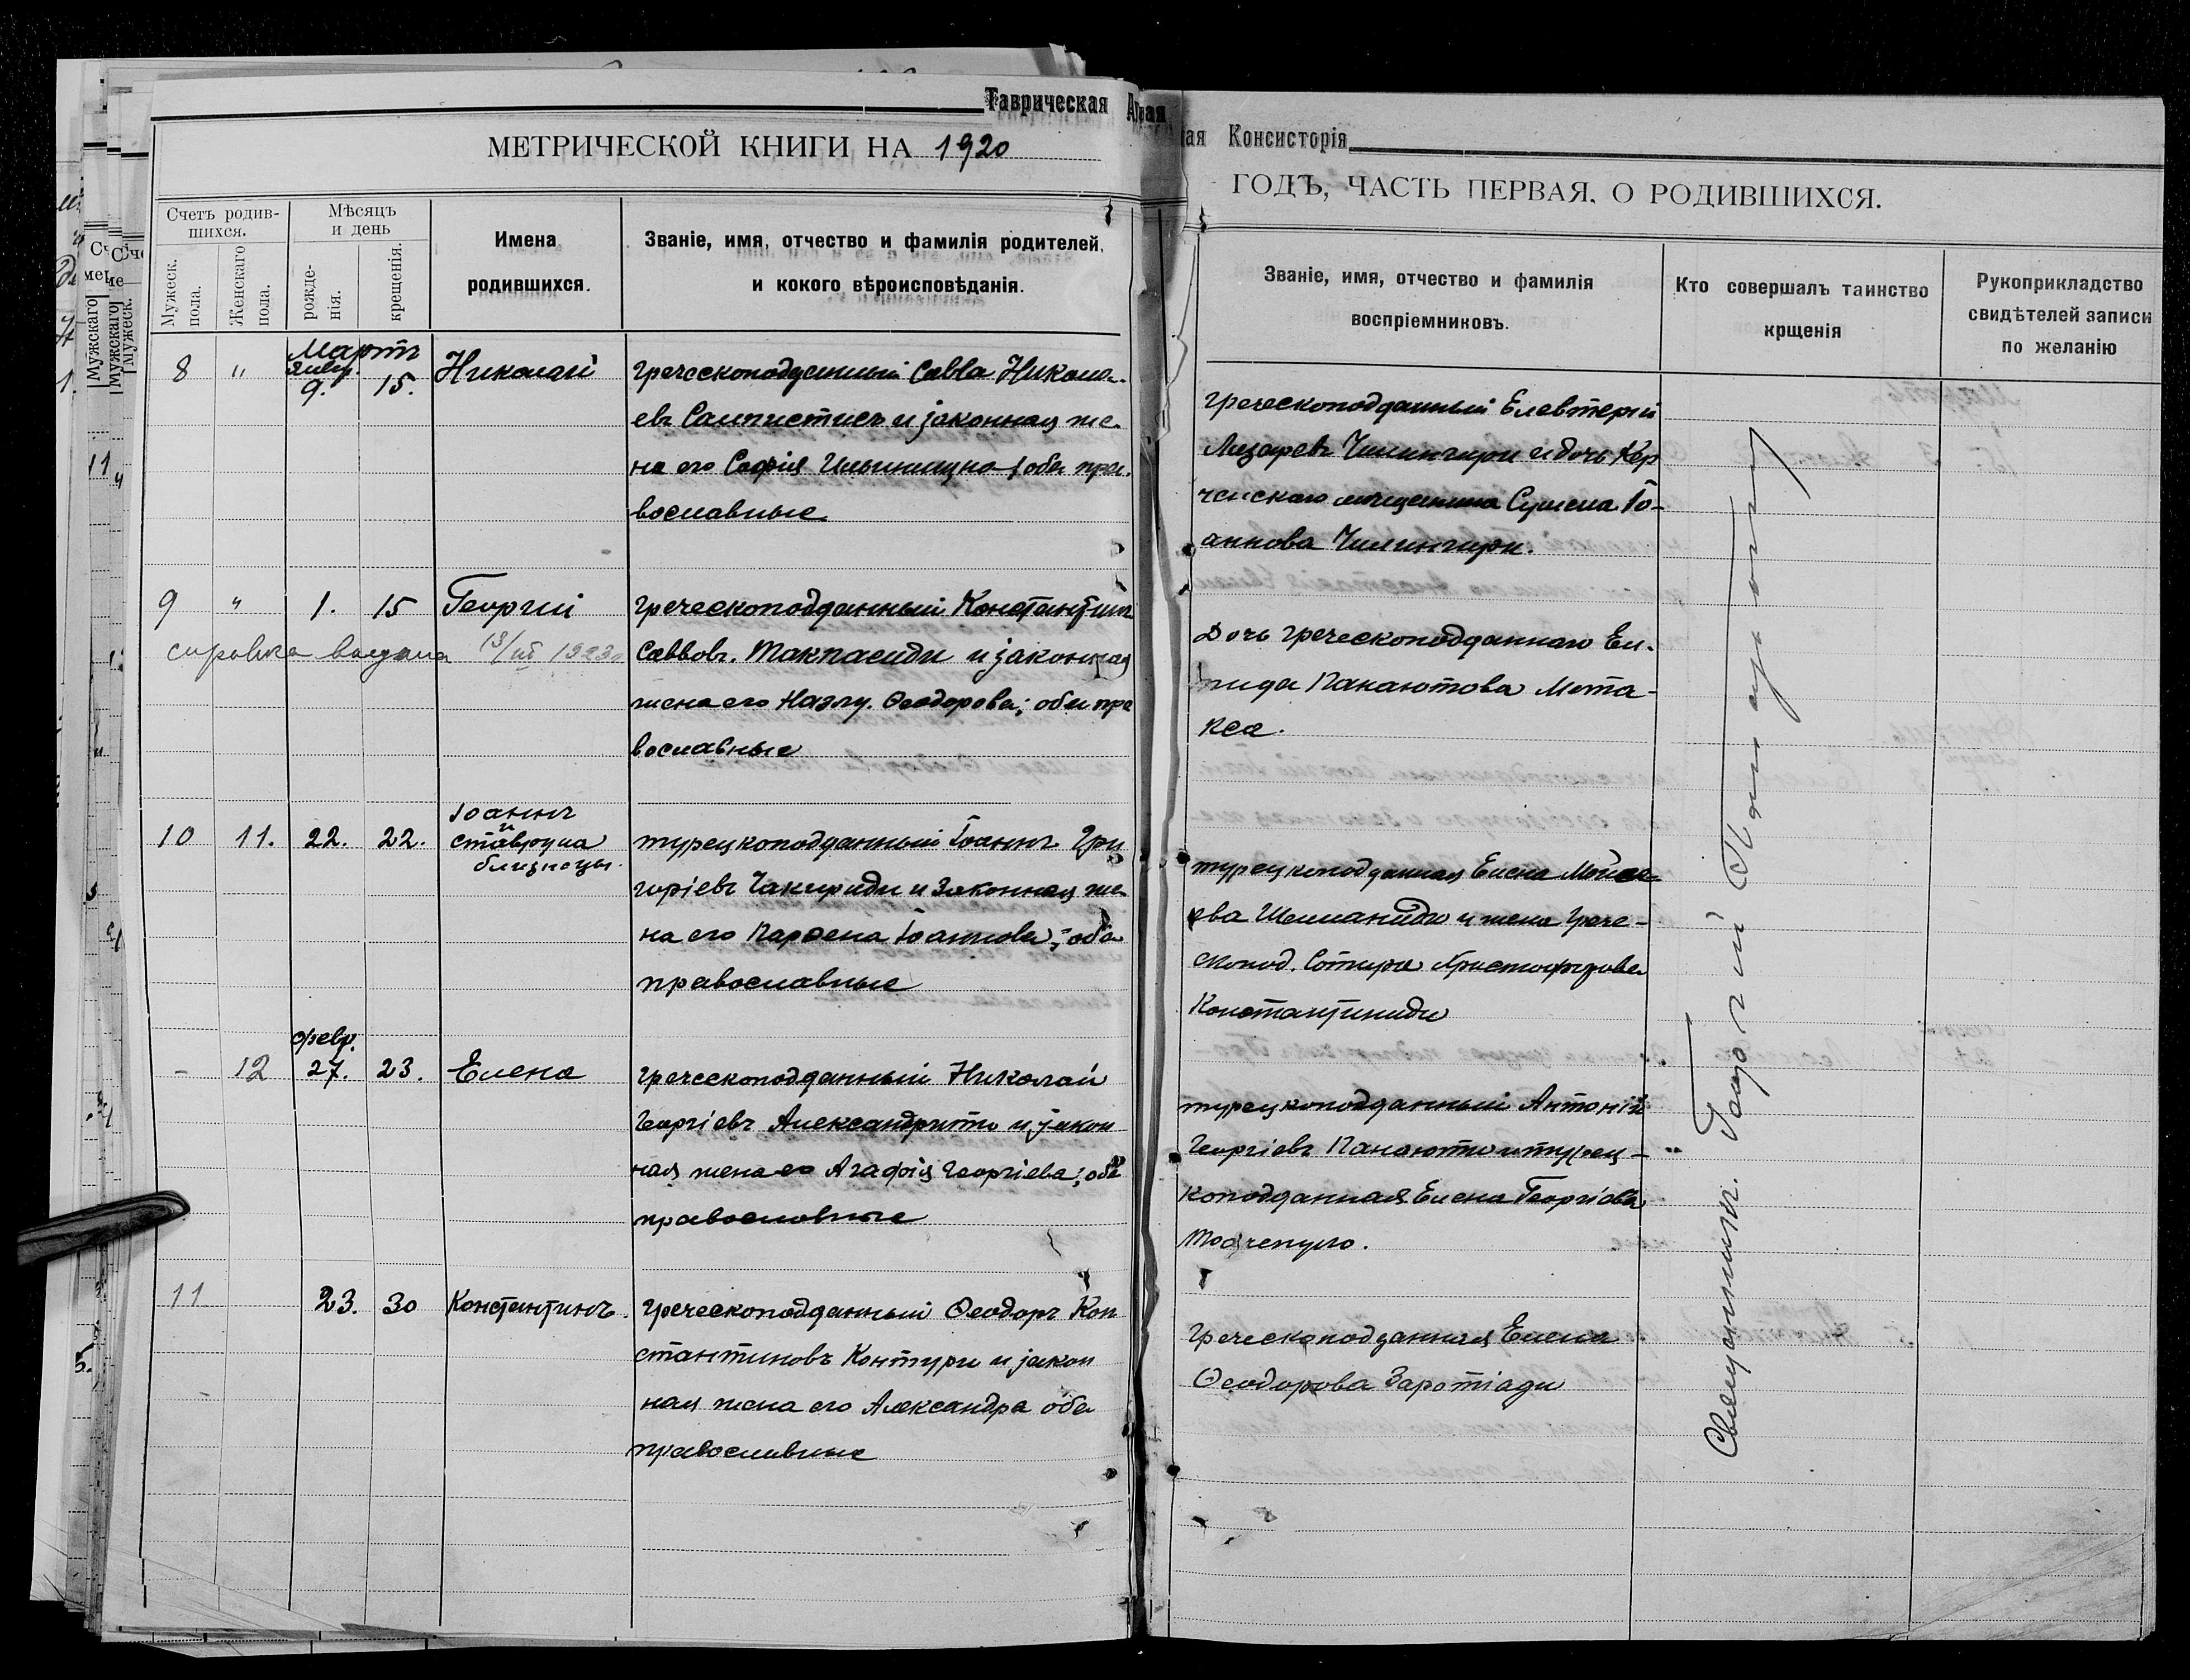 Таврическая
ая Консисторія
МЕТРИЧЕСКОЙ КНИГИ НА 1920
ГОДЪ, ЧАСТЬ ПЕРВАЯ, О РОДИВШИХСЯ.
Счетъ родив-
шихся.
Мужеск.
пола.
Женскаго
пола.
Мѣсяцъ
и день
рожде-
нія.
крещенія.
Имена
родившихся.
Званіе, имя, отчество и фамилія родителей,
и кокого вѣроисповѣданія.
Званіе, имя, отчество и фамилія
воспріемниковъ.
Кто совершалъ таинство
крщенія
Рукоприкладство
свидѣтелей записи
по желанію
Мартъ
Янвр.
8 " 9. 15. Николай
греческоподданный Савва Никола-
евъ и законная же-
на его Софія обa пра-
вославные
греческоподданный Елевтерій
Лазаревъ Чилингири и дочь Кер
ченскаго мещанина Іо-
аннова Чилингири.
9 " 1. 15 Георгій
справка выдана 13/VII 1923
греческоподданный Константинъ
Саввов. Такпасиди и законная
жена его Назлу Ѳеодорова; оба пра
вославные
Дочь греческоподданнаго Ел-
пида Панаютова Мета-
кса.
10 11. 22. 22. Іоаннъ
и
ставрула
близнецы.
турецкоподданный Іоаннъ Гри
горіевъ Чакириди и законная же
на его Парѳена Іоаннова; оба
православные
турецкоподданная Елена
ева и жена грече-
скопод. Сотира Христофорова
Константиниди
февр.
- 12 27. 23. Елена
греческоподданный Николай
Георгіевъ Александрито и закон
ная жена его Агафія Георгіева; оба
православные
турецкоподданный Антоній
Георгіевъ Панаюто и турец-
коподданная Елена Георгіева
11 23. 30 Константинъ.
греческоподданный Ѳеодоръ Кон
стантиновъ Контури и закон
ная жена его Александра оба
православные
Греческоподданная Елена
Ѳеодорова Заротіади
Священникъ Георгій
Мужскаго
Мужскаго
Мужеск.